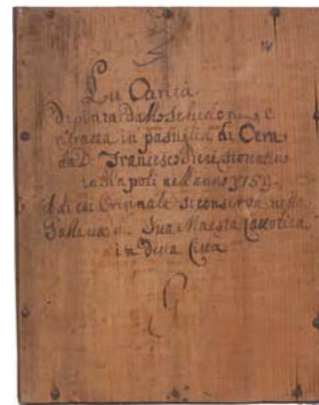 La Carità
Dipinta Dallo Schedoni, e
ritratta in pastiglia di Cera
da D. Francesco Pieri Fiorentino
in Napoli nell'anno 1759.
il di cui Originale si conserva nella
Galleria di Sua Maestà Cattolica
in detta Città